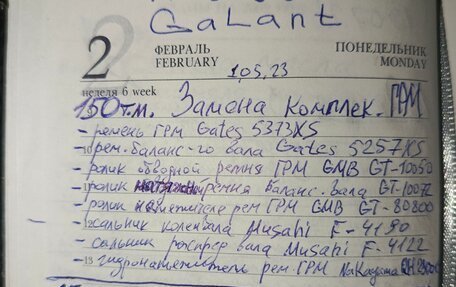 Galant
2 ФЕВРАЛЬ ПОНЕДЕЛЬНИК
FEBRUARY MONDAY
1.05.23
неделя 6 week
150 т.м. Замена комплек. ГРМ
- ремень ГРМ Gates 5373XS
- рем. баланс-го вала Gates 5257XS
- ролик обводной ремня ГРМ GMB GT-10050
- ролик ремня баланс. вала GT-10072
- ролик натяжителя рем ГРМ GMB GT-80800
- сальник коленвала Musahi F-4190
- сальник распред вала Musahi F-4122
13 - гидронатяжитель рем ГРМ Nakayama